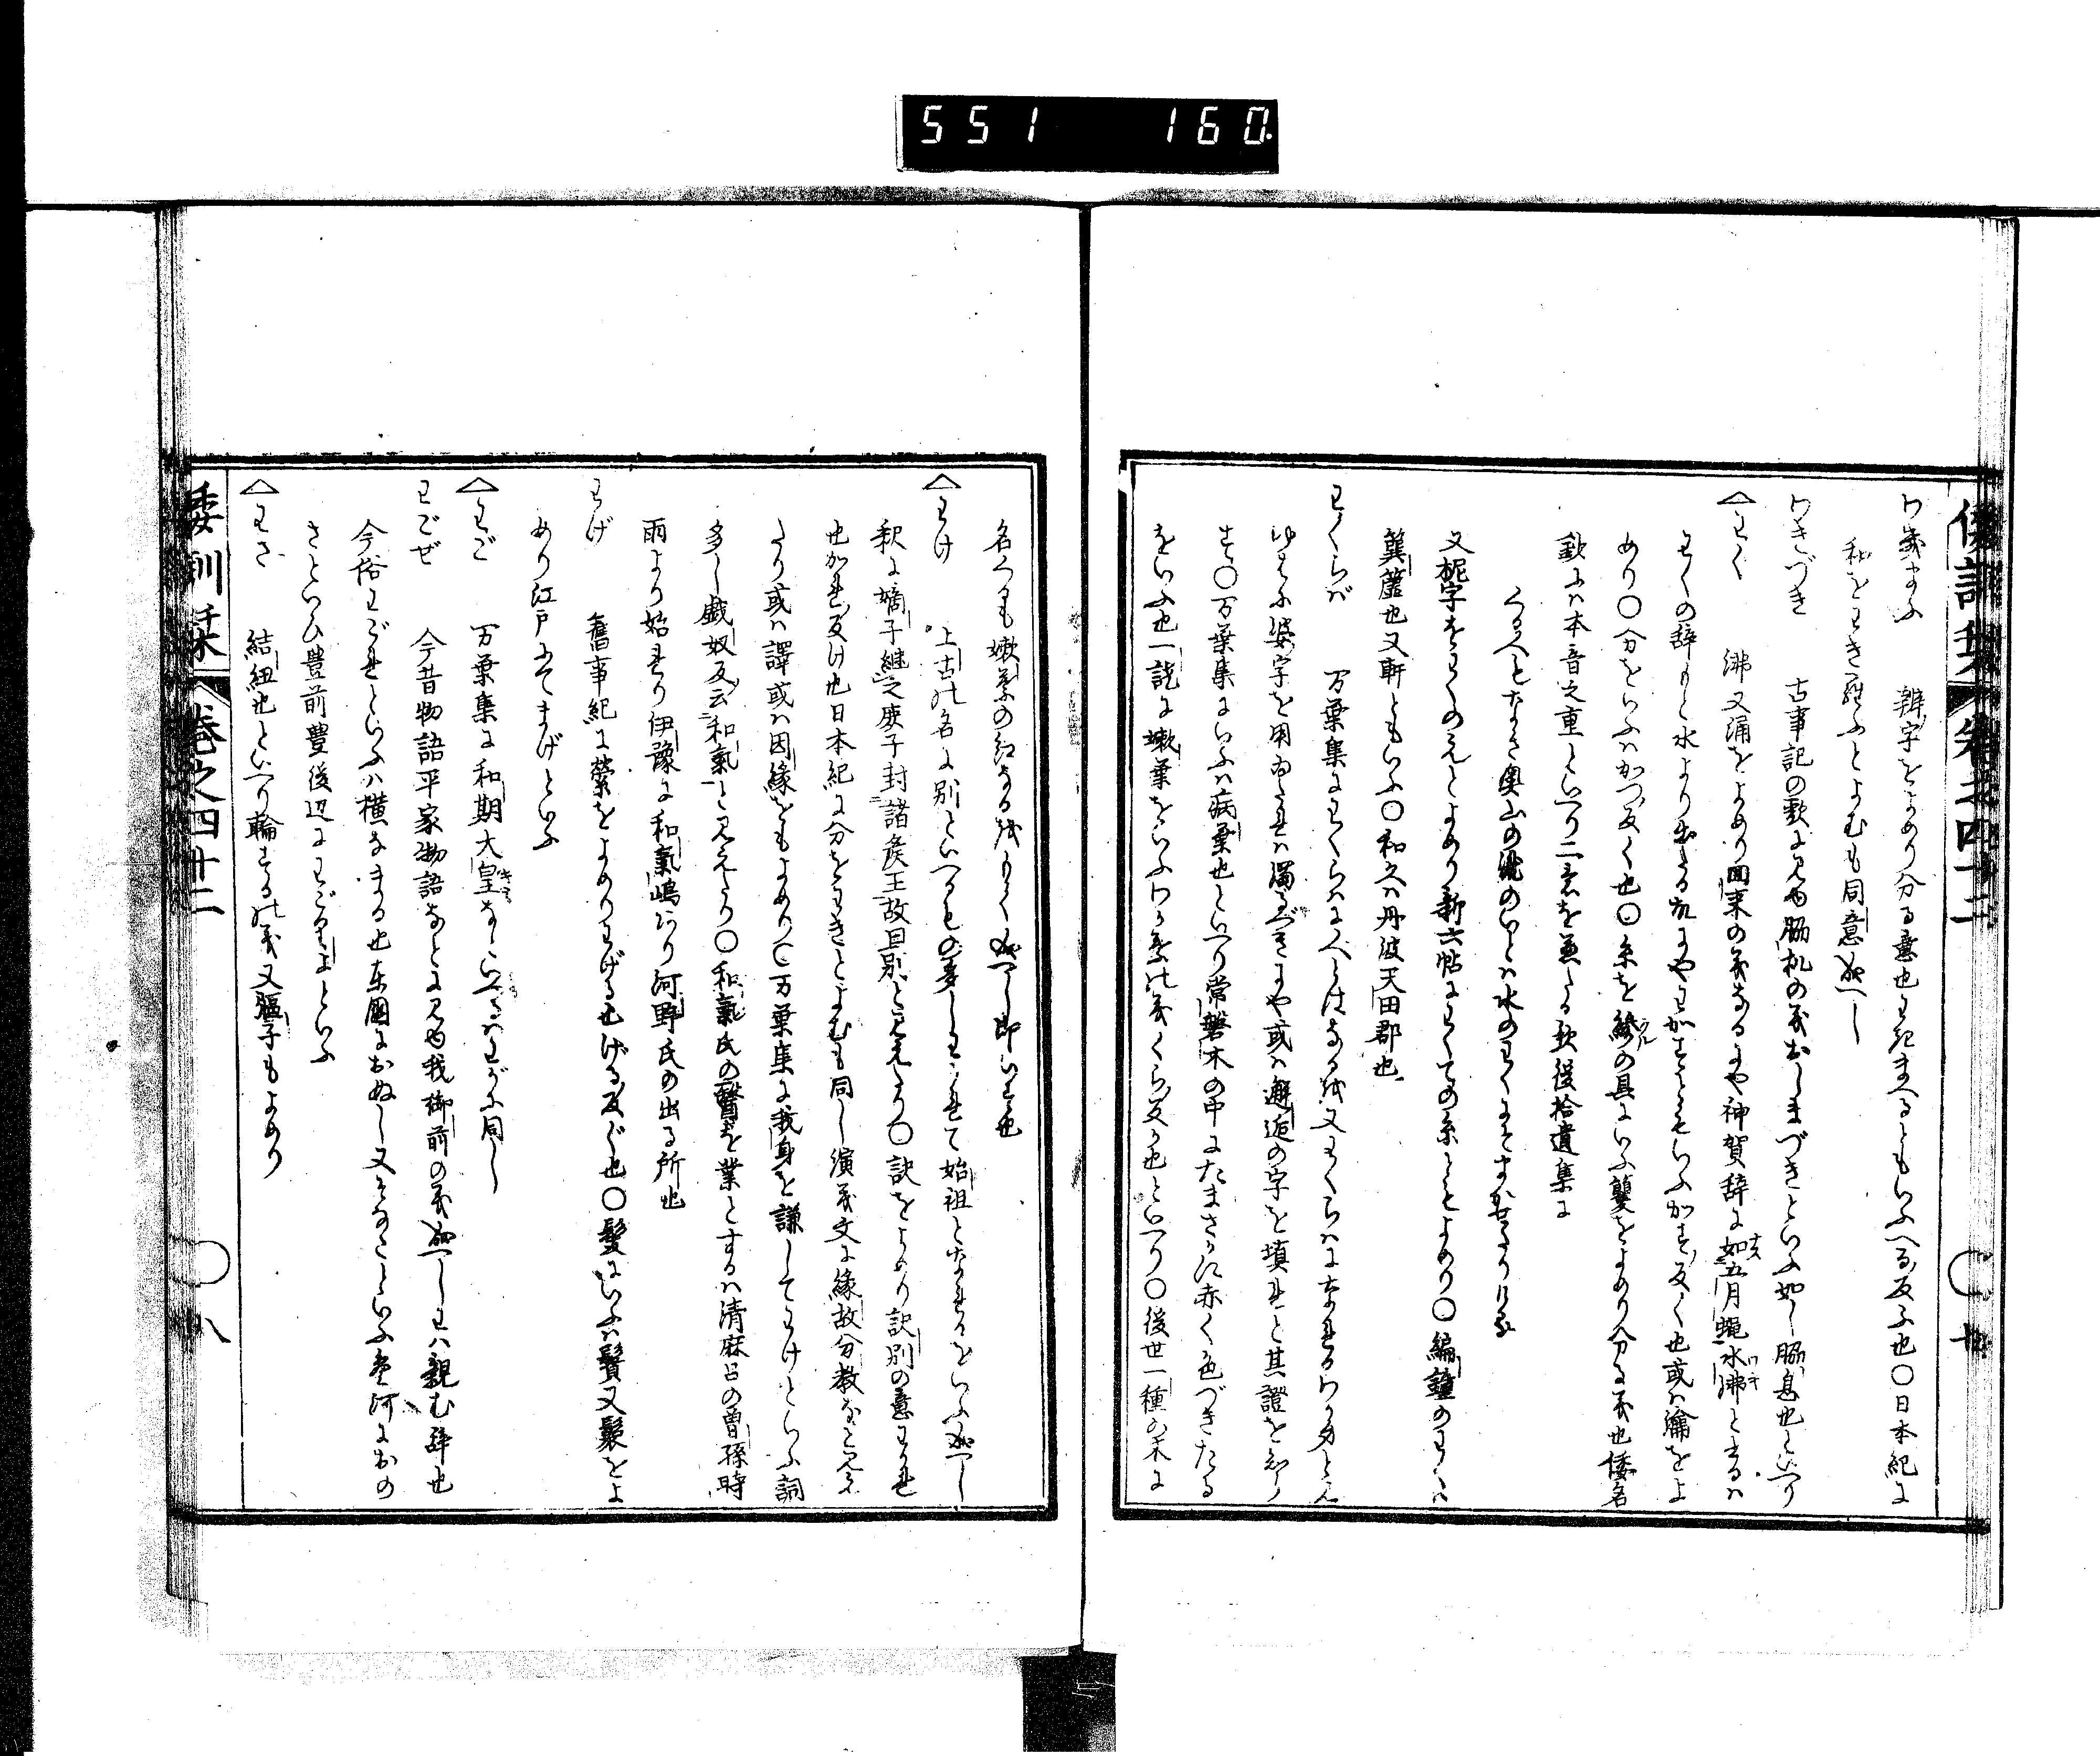 551 160
倭訓栞 卷之四十二 ○ 七
わきまふ 辨字をよめり分る意也わきまへるともいふへる反ふ也○日本紀に
私をわきまふとよむも同意なるべし
わきづき 古事記の歌に見ゆ脇机の義おしまづきといふ如し脇息也といへり
△わく 沸又涌をよめり の義なるにや神賀辞に如五月蠅水沸とあるは
わくの辞もと水より出たる にやわかすともいふかす反く也或は瀹をよ
めり○分をいふはかつ反く也○糸を の具にいふ籰をよめり分る義也倭名
鈔には本音之重といへり二意を兼たる歌後拾遺集に
くる人もなき奥山の瀧のいとは水のわくにそまかせたりける
又柅字をわくのえとよめり新六帖にわくての糸ともよめり○編鐘のわくは
簨簴也又軒ともいふ○和久は丹波天田郡也
わくらば 万葉集にわくらはに人とはなるを又わくらはになれるわか身とも
ゆゑに婆字を用ゐたれは濁るべきにや或は邂逅の字を填れと其證をしら
す○万葉集にいふは病葉也といへり常磐木の中にたまさかに赤く色づきたる
をいふ也一説に嫩葉をいふわか葉の義くら反か也といへり○後世一種の木に
名くるも嫩葉の紅なるをもて 也
△わけ 上古の名に別といへるもの多しわかれて始祖となれるをいふ成べし
釈に嫡子継之庶子封諸侯王故曰別と見えたり○訣をよめり訣別の意わかれ
也かれ反け也日本紀に分をわきとよむも同し演義文に縁故分教なと見え
たり或は譯或は因縁をもよめり○万葉集に我身を謙してわけといふ詞
多し戯奴反云和氣と見えたり○和氣氏の醫を業とするは清麻呂の曽孫時
雨より始れり伊豫に和氣嶋あり河野氏の出る所也
わげ 舊事紀に縈をよめりわげる也げる反ぐ也○髪にいふは鬟又髻をよ
めり江戸にてまげといふ
△わご 万葉集に和期大皇なといへるはわがに同し
わごぜ 今昔物語平家物語なとに見ゆ我御前の義成べしわは親む辞也
今俗わごれといふは横なまる也東國におぬし又そなこといふ駿河におの
さといひ豊前豊後辺にわごりよといふ
△わさ 結紐也といへり輪さるの義又 子もよめり
倭訓栞 卷之四十二 ○ 八